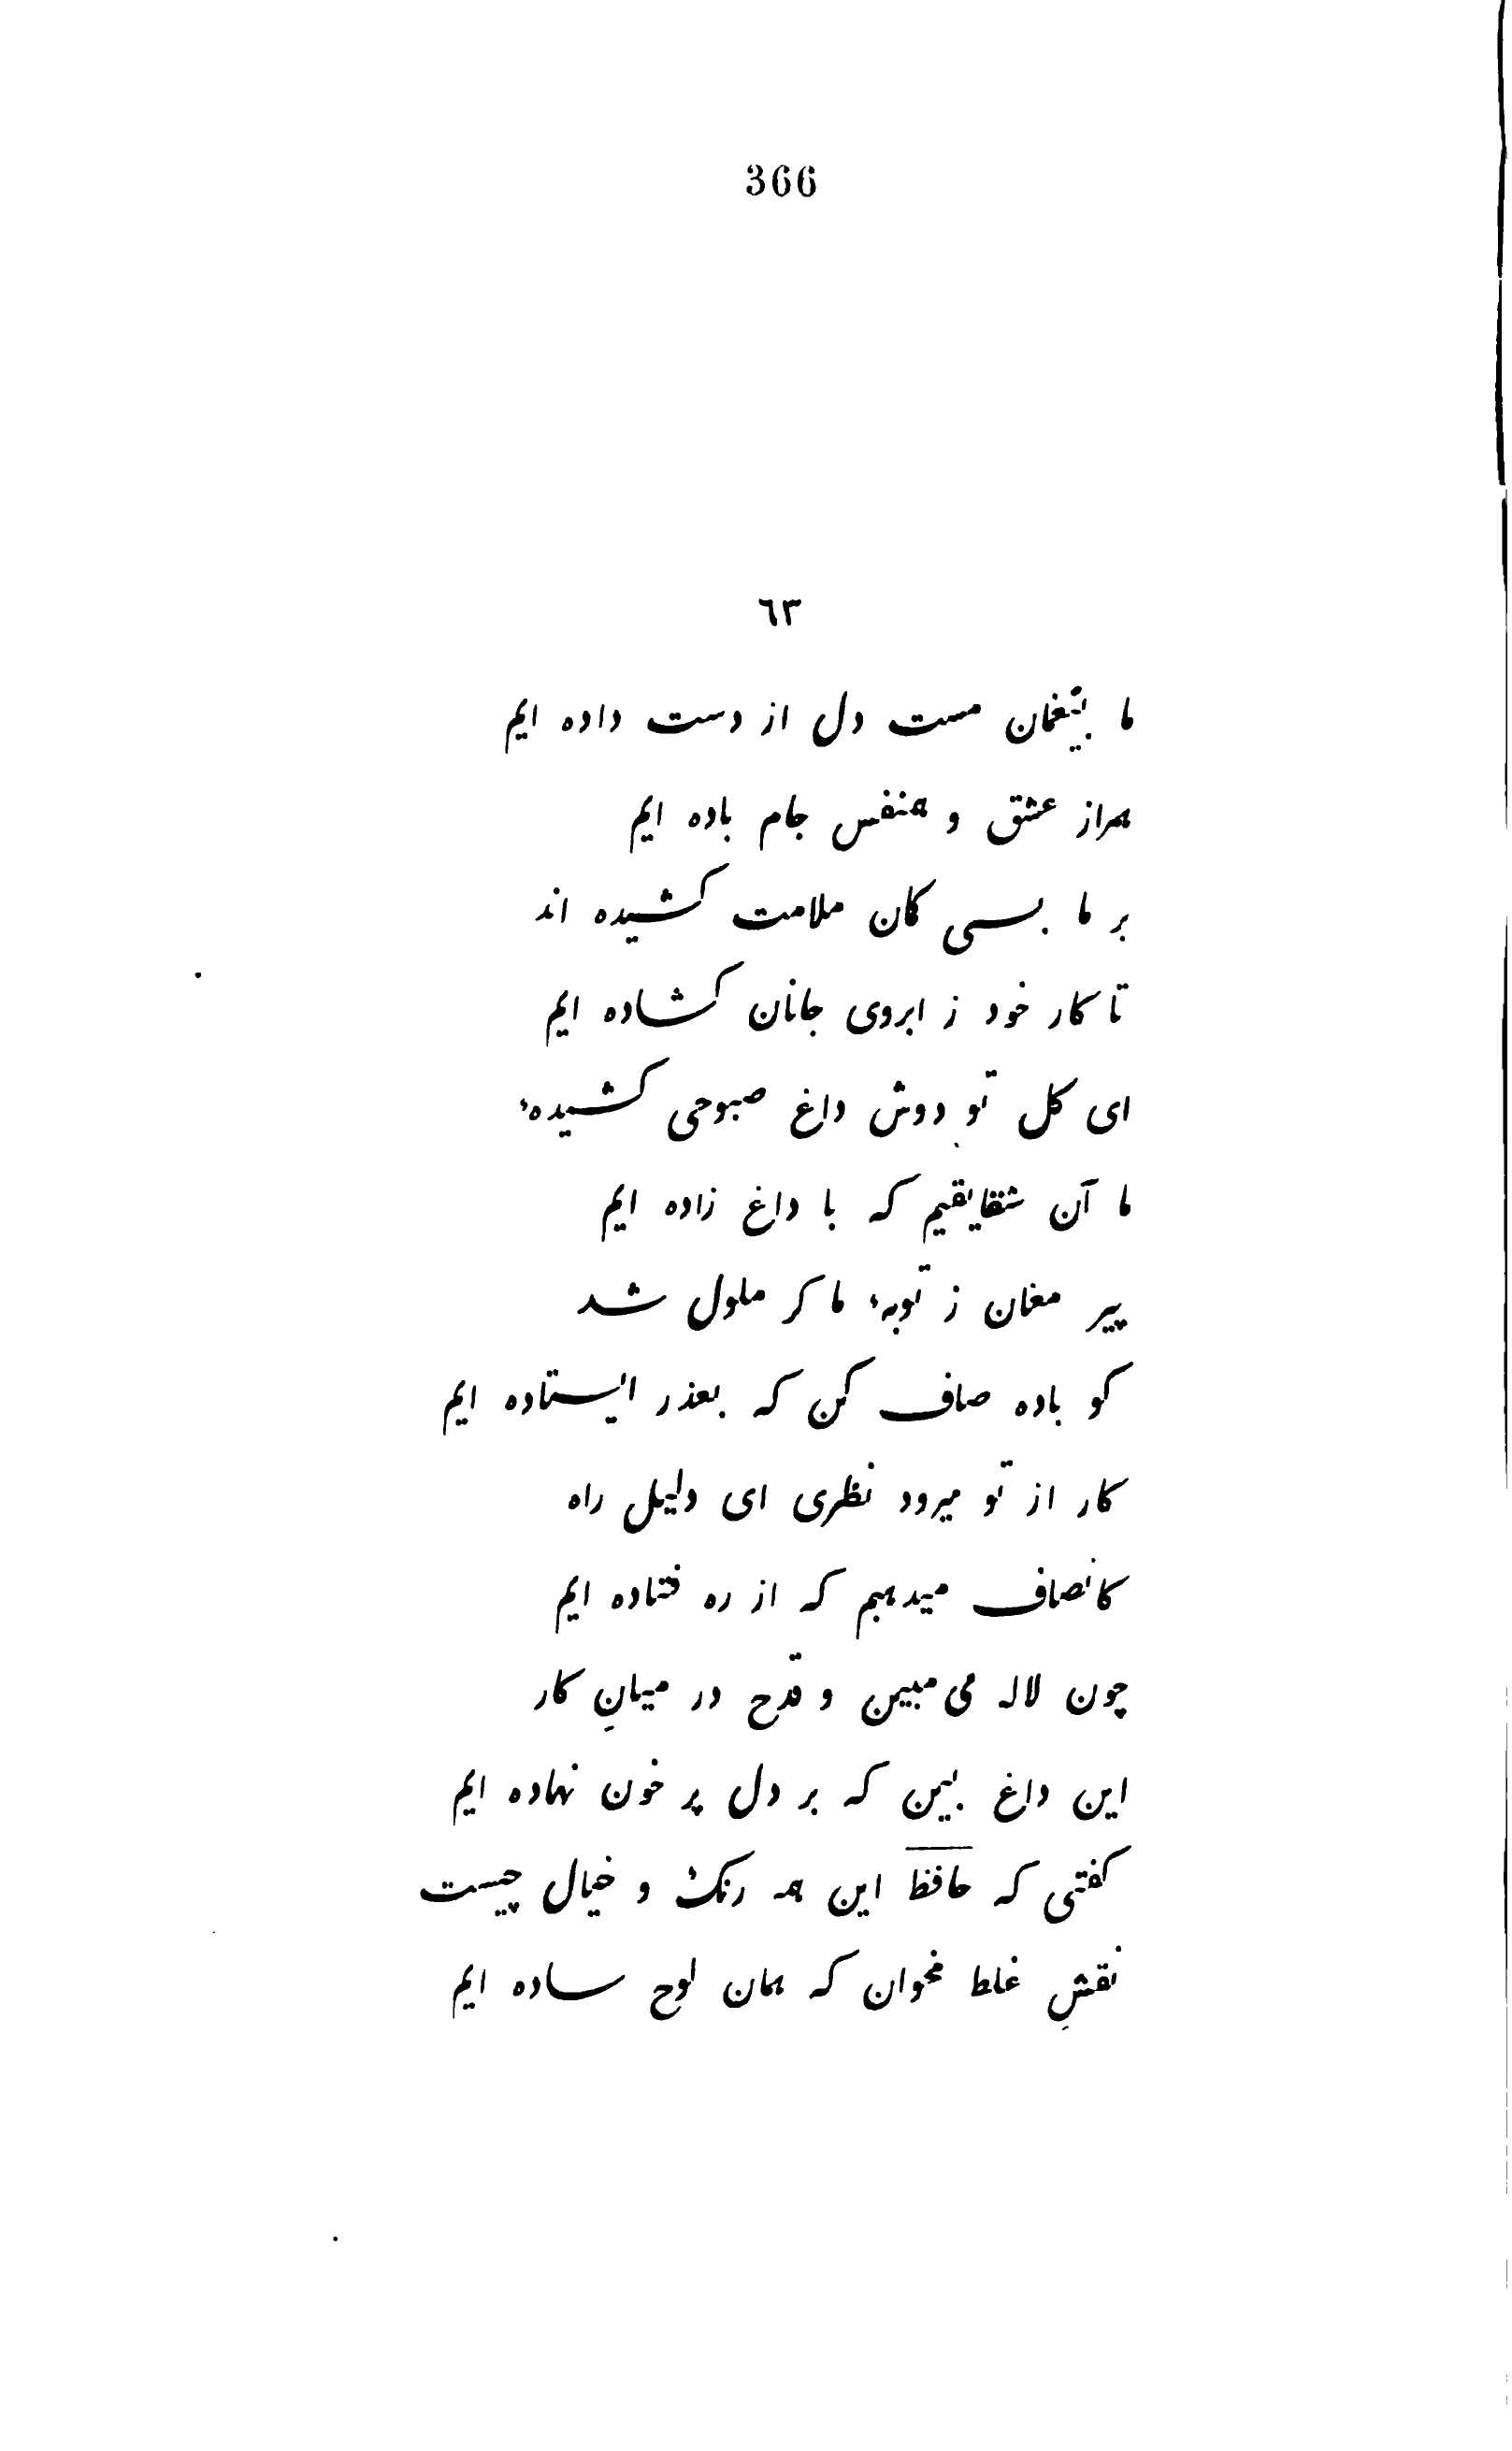 366
٦٣
ما بیغمان مست دل از دست داده ایم
همراز عشق و همنفس جام باده ایم
بر ما بسی کمان ملامت کشیده اند
تا کار خود ز ابروی جانان کشاده ایم
ای کل تو دوش داغ صبوحی کشیدهٔ
ما آن شقایقیم که با داغ زاده ایم
پیر مغان ز توبهٔ ما کر ملول شد
کو باده صاف کن که بعذر ایستاده ایم
کار از تو میرود نظری ای دلیل راه
کانصاف میدهیم که از ره فتاده ایم
چون لاله می مبین و قدح در میانِ کار
این داغ بین که بر دل پر خون نهاده ایم
کفتی که حافظ این همه رنک و خیال چیست
نقشِ غلط مخوان که همان لوح ساده ایم